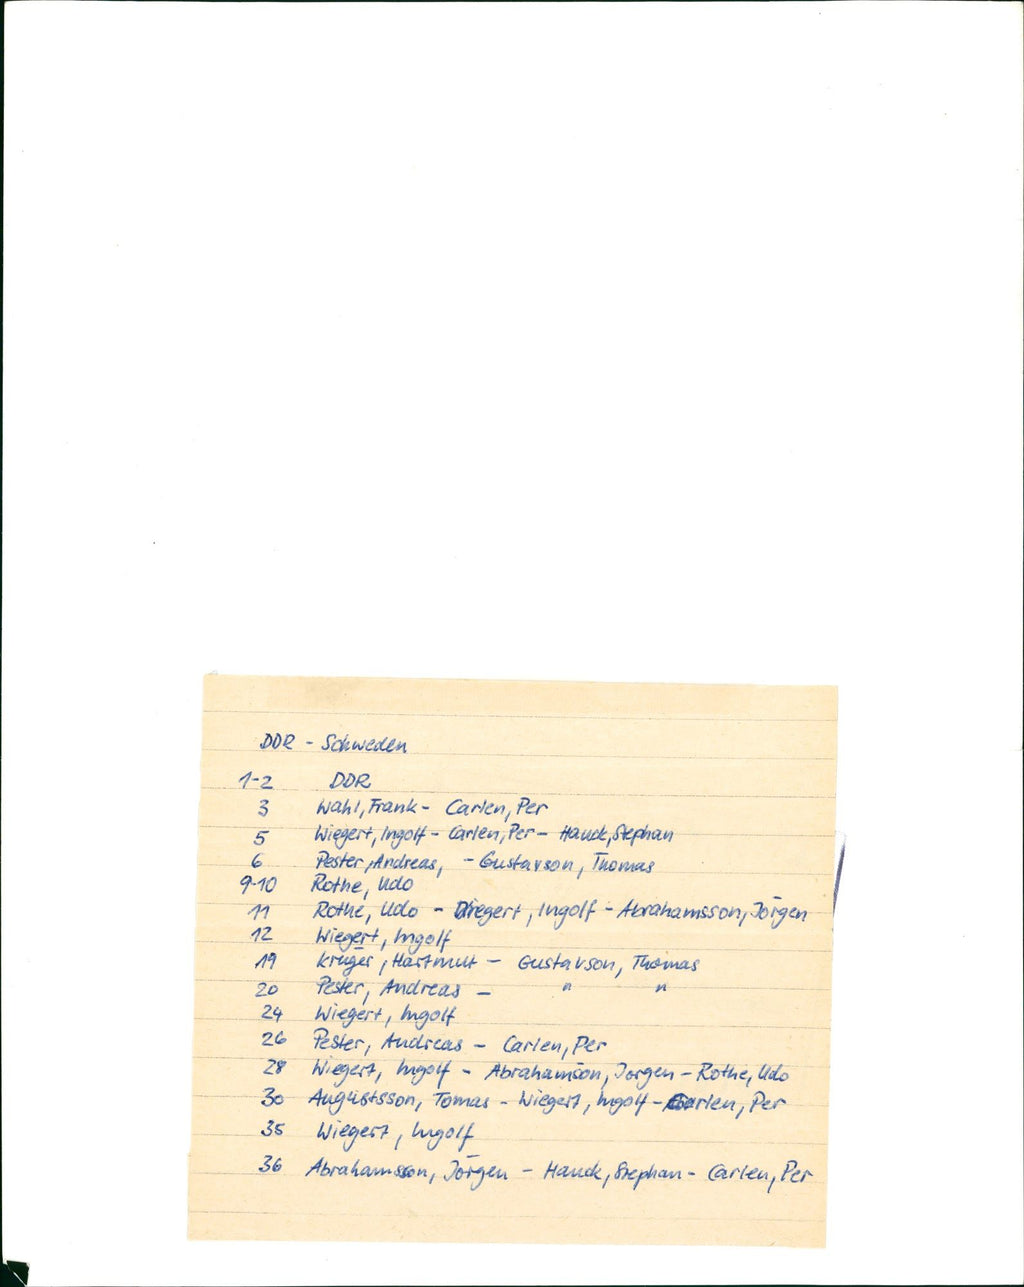 DDR - Schweden
1-2 DDR
3 Wahl, Frank - Carlen, Per
5 Wiegert, Ingolf - Carlen, Per - Hauck, Stephan
6 Pester, Andreas, - Gustavson, Thomas
9-10 Rothe, Udo
11 Rothe, Udo - Wiegert, Ingolf - Abrahamsson, Jörgen
12 Wiegert, Ingolf
19 Krüger, Hartmut - Gustavson, Thomas
20 Pester, Andreas - " "
24 Wiegert, Ingolf
26 Pester, Andreas - Carlen, Per
28 Wiegert, Ingolf - Abrahamson, Jorgen - Rothe, Udo
30 Augustsson, Tomas - Wiegert, Ingolf - Carlen, Per
35 Wiegert, Ingolf
36 Abrahamsson, Jörgen - Hauck, Stephan - Carlen, Per